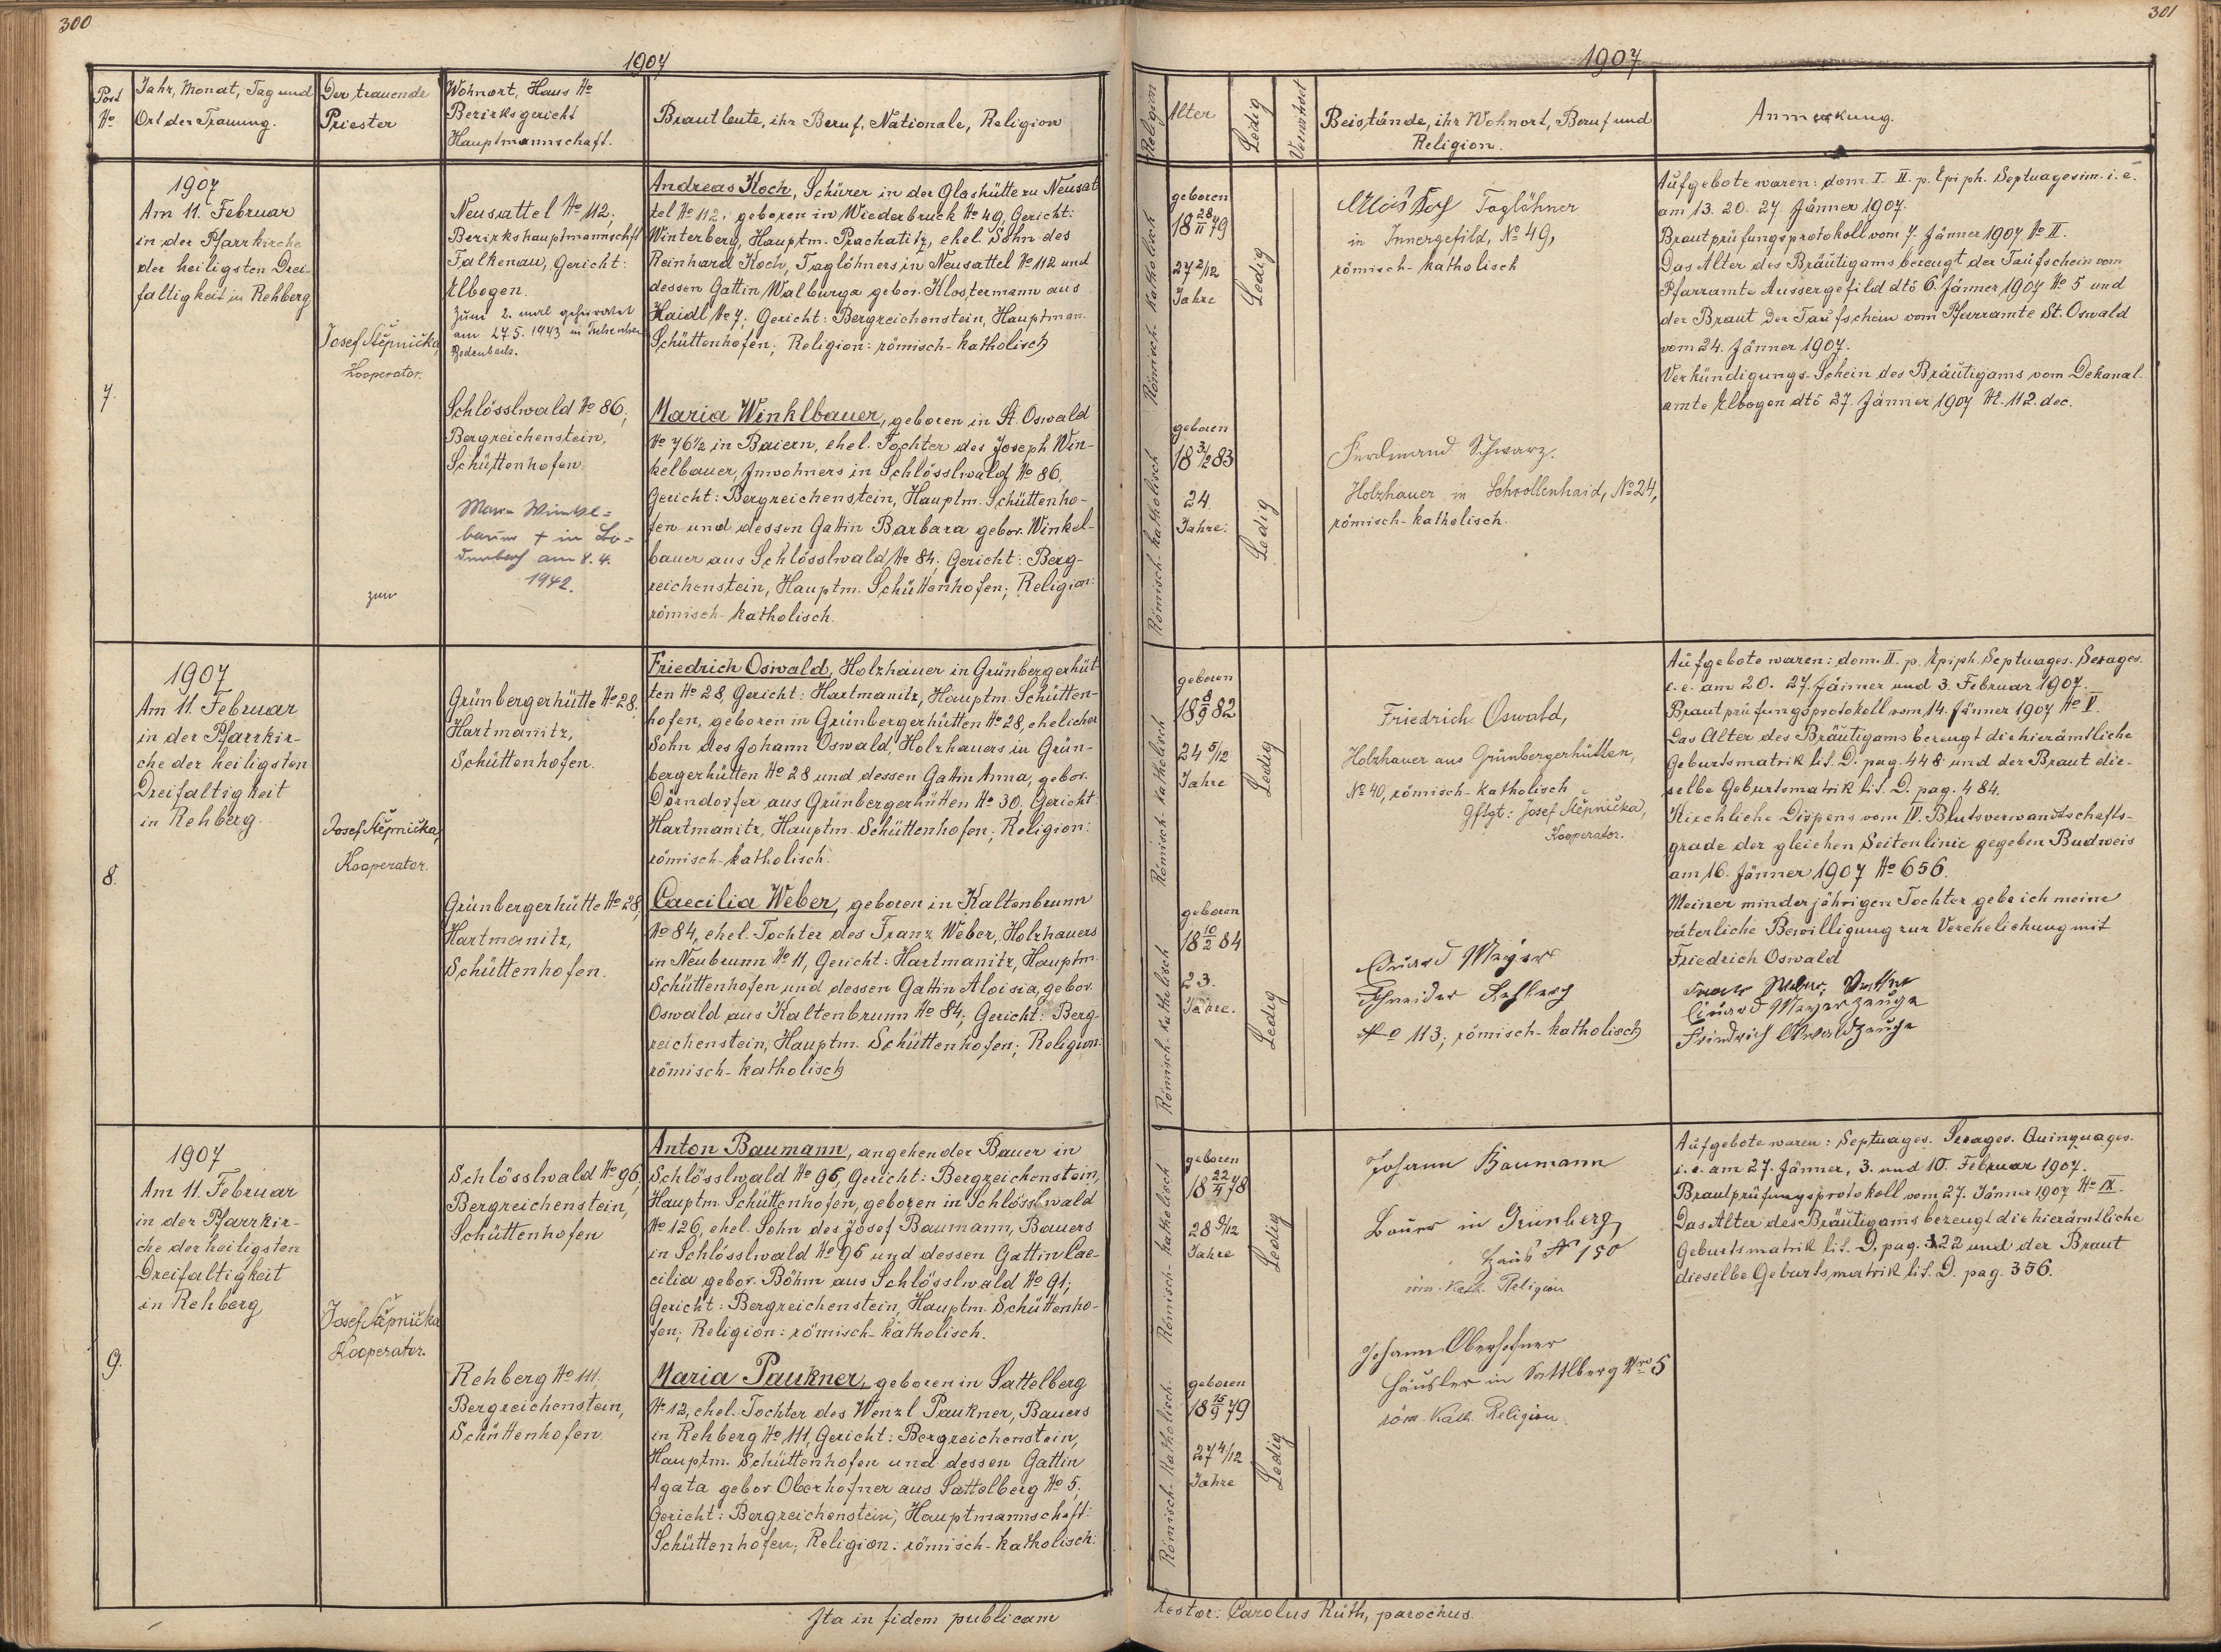 300
1907
Post
No
Jahr, Monat, Tag und
Ort der Trauung.
Der trauende
Priester
Wohnort, Haus No
Bezirksgericht
Hauptmannschaft.
Brautleute, ihr Beruf, Nationale, Religion
7.
1907
Am 11. Februar
in der Pfarrkirche
der heiligsten Drei-
faltigkeit in Rehberg
Josef Štěpnička,
Kooperator.
Neusattel No 112;
Bezirkshauptmannschft
Falkenau, Gericht:
Elbogen.
Zum 2. mal geheiratet
am 27.5. 1943 in
Bodenbach.
Schlösslwald No 86,
Bergreichenstein,
Schüttenhofen.
Maria Winkel=
bauer + in Bo=
denbach am 8. 4.
1942.
zum
Andreas Koch, Schürer in der Glashütte zu Neusat
tel No 112, geboren in Wiederbruck No 49, Gericht:
Winterberg, Hauptm. Prachatitz, ehel. Sohn des
Reinhard Koch, Taglöhners in Neusattel No 112 und
dessen Gattin Walburga gebor. Klostermann aus
Haidl No 7. Gericht: Bergreichenstein, Hauptman.
Schüttenhofen; Religion: römisch-katholisch
Maria Winklbauer, geboren in St. Oswald
No 76½ in Baiern, ehel. Tochter des Joseph Win-
kelbauer, Inwohners in Schlösslwald No 86,
Gericht: Bergreichenstein, Hauptm. Schüttenho-
fen und dessen Gattin Barbara gebor. Winkel-
bauer aus Schlösslwald No 84; Gericht: Berg-
reichenstein, Hauptm. Schüttenhofen; Religion:
römisch-katholisch.
8.
1907
Am 11. Februar
in der Pfarrkir-
che der heiligsten
Dreifaltigkeit
in Rehberg.
Josef Štěpnička,
Kooperator.
Grünbergerhütte No 28,
Hartmanitz,
Schüttenhofen.
Grünbergerhütte No 28,
Hartmanitz,
Schüttenhofen.
Friedrich Oswald, Holzhauer in Grünbergerhüt
ten No 28, Gericht: Hartmanitz, Hauptm. Schütten-
hofen, geboren in Grünbergerhütten No 28, ehelicher
Sohn des Johann Oswald, Holzhauers in Grün-
bergerhütten No 28 und dessen Gattin Anna, gebor.
Dörndorfer aus Grünbergerhütten No 30. Gericht:
Hartmanitz, Hauptm. Schüttenhofen; Religion:
römisch-katholisch.
Caecilia Weber, geboren in Kaltenbrunn
No 84, ehel. Tochter des Franz Weber, Holzhauers
in Neubrunn No 11, Gericht: Hartmanitz, Hauptm.
Schüttenhofen und dessen Gattin Aloisia, gebor.
Oswald aus Kaltenbrunn No 84; Gericht: Berg-
reichenstein, Hauptm. Schüttenhofen; Religion:
römisch-katholisch
9.
1907
Am 11. Februar
in der Pfarrkir-
che der heiligsten
Dreifaltigkeit
in Rehberg
Josef Štěpnička
Kooperator.
Schlösslwald No 96,
Bergreichenstein,
Schüttenhofen
Rehberg No 111.
Bergreichenstein,
Schüttenhofen
Anton Baumann, angehender Bauer in
Schlösslwald No 96, Gericht: Bergreichenstein,
Hauptm. Schüttenhofen, geboren in Schlösslwald
No 126, ehel. Sohn des Josef Baumann, Bauers
in Schlösslwald No 96 und dessen Gattin Cae-
cilia gebor. Böhm aus Schlösslwald No 91;
Gericht: Bergreichenstein, Hauptm. Schüttenho-
fen; Religion: römisch-katholisch.
Maria Paukner, geboren in Sattelberg
No 12, ehel. Tochter des Wenzl Paukner, Bauers
in Rehberg No 111, Gericht: Bergreichenstein,
Hauptm. Schüttenhofen und dessen Gattin
Agata gebor. Oberhofner aus Sattelberg No 5;
Gericht: Bergreichenstein; Hauptmannschaft:
Schüttenhofen; Religion: römisch-katholisch:
Ita in fidem publicam
301
1907
Religion
Alter
Ledig
Verwitwet
Beistände, ihr Wohnort, Beruf und
Religion.
Anmerkung.
Römisch-katholisch
geboren
18 28/11 79
27 2/12
Jahre
Ledig
Römisch-katholisch
geboren
18 3/2 83
24
Jahre.
Ledig
Alois Koch Taglöhner
in Innergefild, No 49,
römisch-katholisch
Ferdinand Schwarz.
Holzhauer in Schrollenhaid, No 24,
römisch-katholisch.
Aufgebote waren: dom. I. II. p. Epiph. Septuagesim. i. e.
am 13. 20. 27. Jänner 1907.
Brautprüfungsprotokoll vom 7. Jänner 1907 No II.
Das Alter des Bräutigams bezeugt der Taufschein vom
Pfarramte Aussergefild dto 6. Jänner 1907 No 5 und
der Braut der Taufschein vom Pfarramte St. Oswald
vom 24. Jänner 1907.
Verkündigungs-Schein des Bräutigams vom Dekanal.
amte Elbogen dto 27. Jänner 1907 No 112. dec.
Römisch-katholisch
geboren
18 8/9 82
24 5/12
Jahre
Ledig
Römisch-katholisch
geboren
18 10/2 84
23.
Jahre.
Ledig
Friedrich Oswald,
Holzhauer aus Grünbergerhütten,
No 40, römisch-katholisch
Gftgt: Josef Štěpnička,
Kooperator.
Eduard Mayer
Schneider Rehberg
No 113; römisch-katholisch
Aufgebote waren: dom. II. p. Epiph. Septuages. Sexages.
i. e. am 20. 27. Jänner und 3. Februar 1907.
Brautprüfungsprotokoll vom 14. Jänner 1907 No V.
Das Alter des Bräutigams bezeugt die hierämtliche
Geburtsmatrik lit. D. pag. 448 und der Braut die-
selbe Geburtsmatrik lit. D. pag. 484.
Kirchliche Dispens vom IV. Blutsverwandtschafts-
grade der gleichen Seitenlinie gegeben Budweis
am 16. Jänner 1907 No 656.
Meiner minderjährigen Tochter gebe ich meine
väterliche Bewilligung zur Verehelichung mit
Friedrich Oswald
Franz Weber, Vatter
Eduard Mayer Zeuge
Friedrich Oswald Zeuge
Römisch-katholisch
geboren
18 22/4 78
28 9/12
Jahre
Ledig
Römisch-katholisch
geboren
18 15/9 79
27 4/12
Jahre
Ledig
Johann Baumann
Bauer in Grünberg
Haus No 150
röm. kath. Religion
Johann Oberhofner
Häusler in Sattlberg Nro 5
röm. kath. Religion.
Aufgebote waren: Septuages. Sexages. Quinquages.
i. e. am 27. Jänner, 3. und 10. Februar 1907.
Brautprüfungsprotokoll vom 27. Jänner 1907 No IX.
Das Alter des Bräutigams bezeugt die hierämtliche
Geburtsmatrik lit. D. pag. 322 und der Braut
dieselbe Geburtsmatrik lit. D. pag. 356.
testor: Carolus Rüth, parochus.